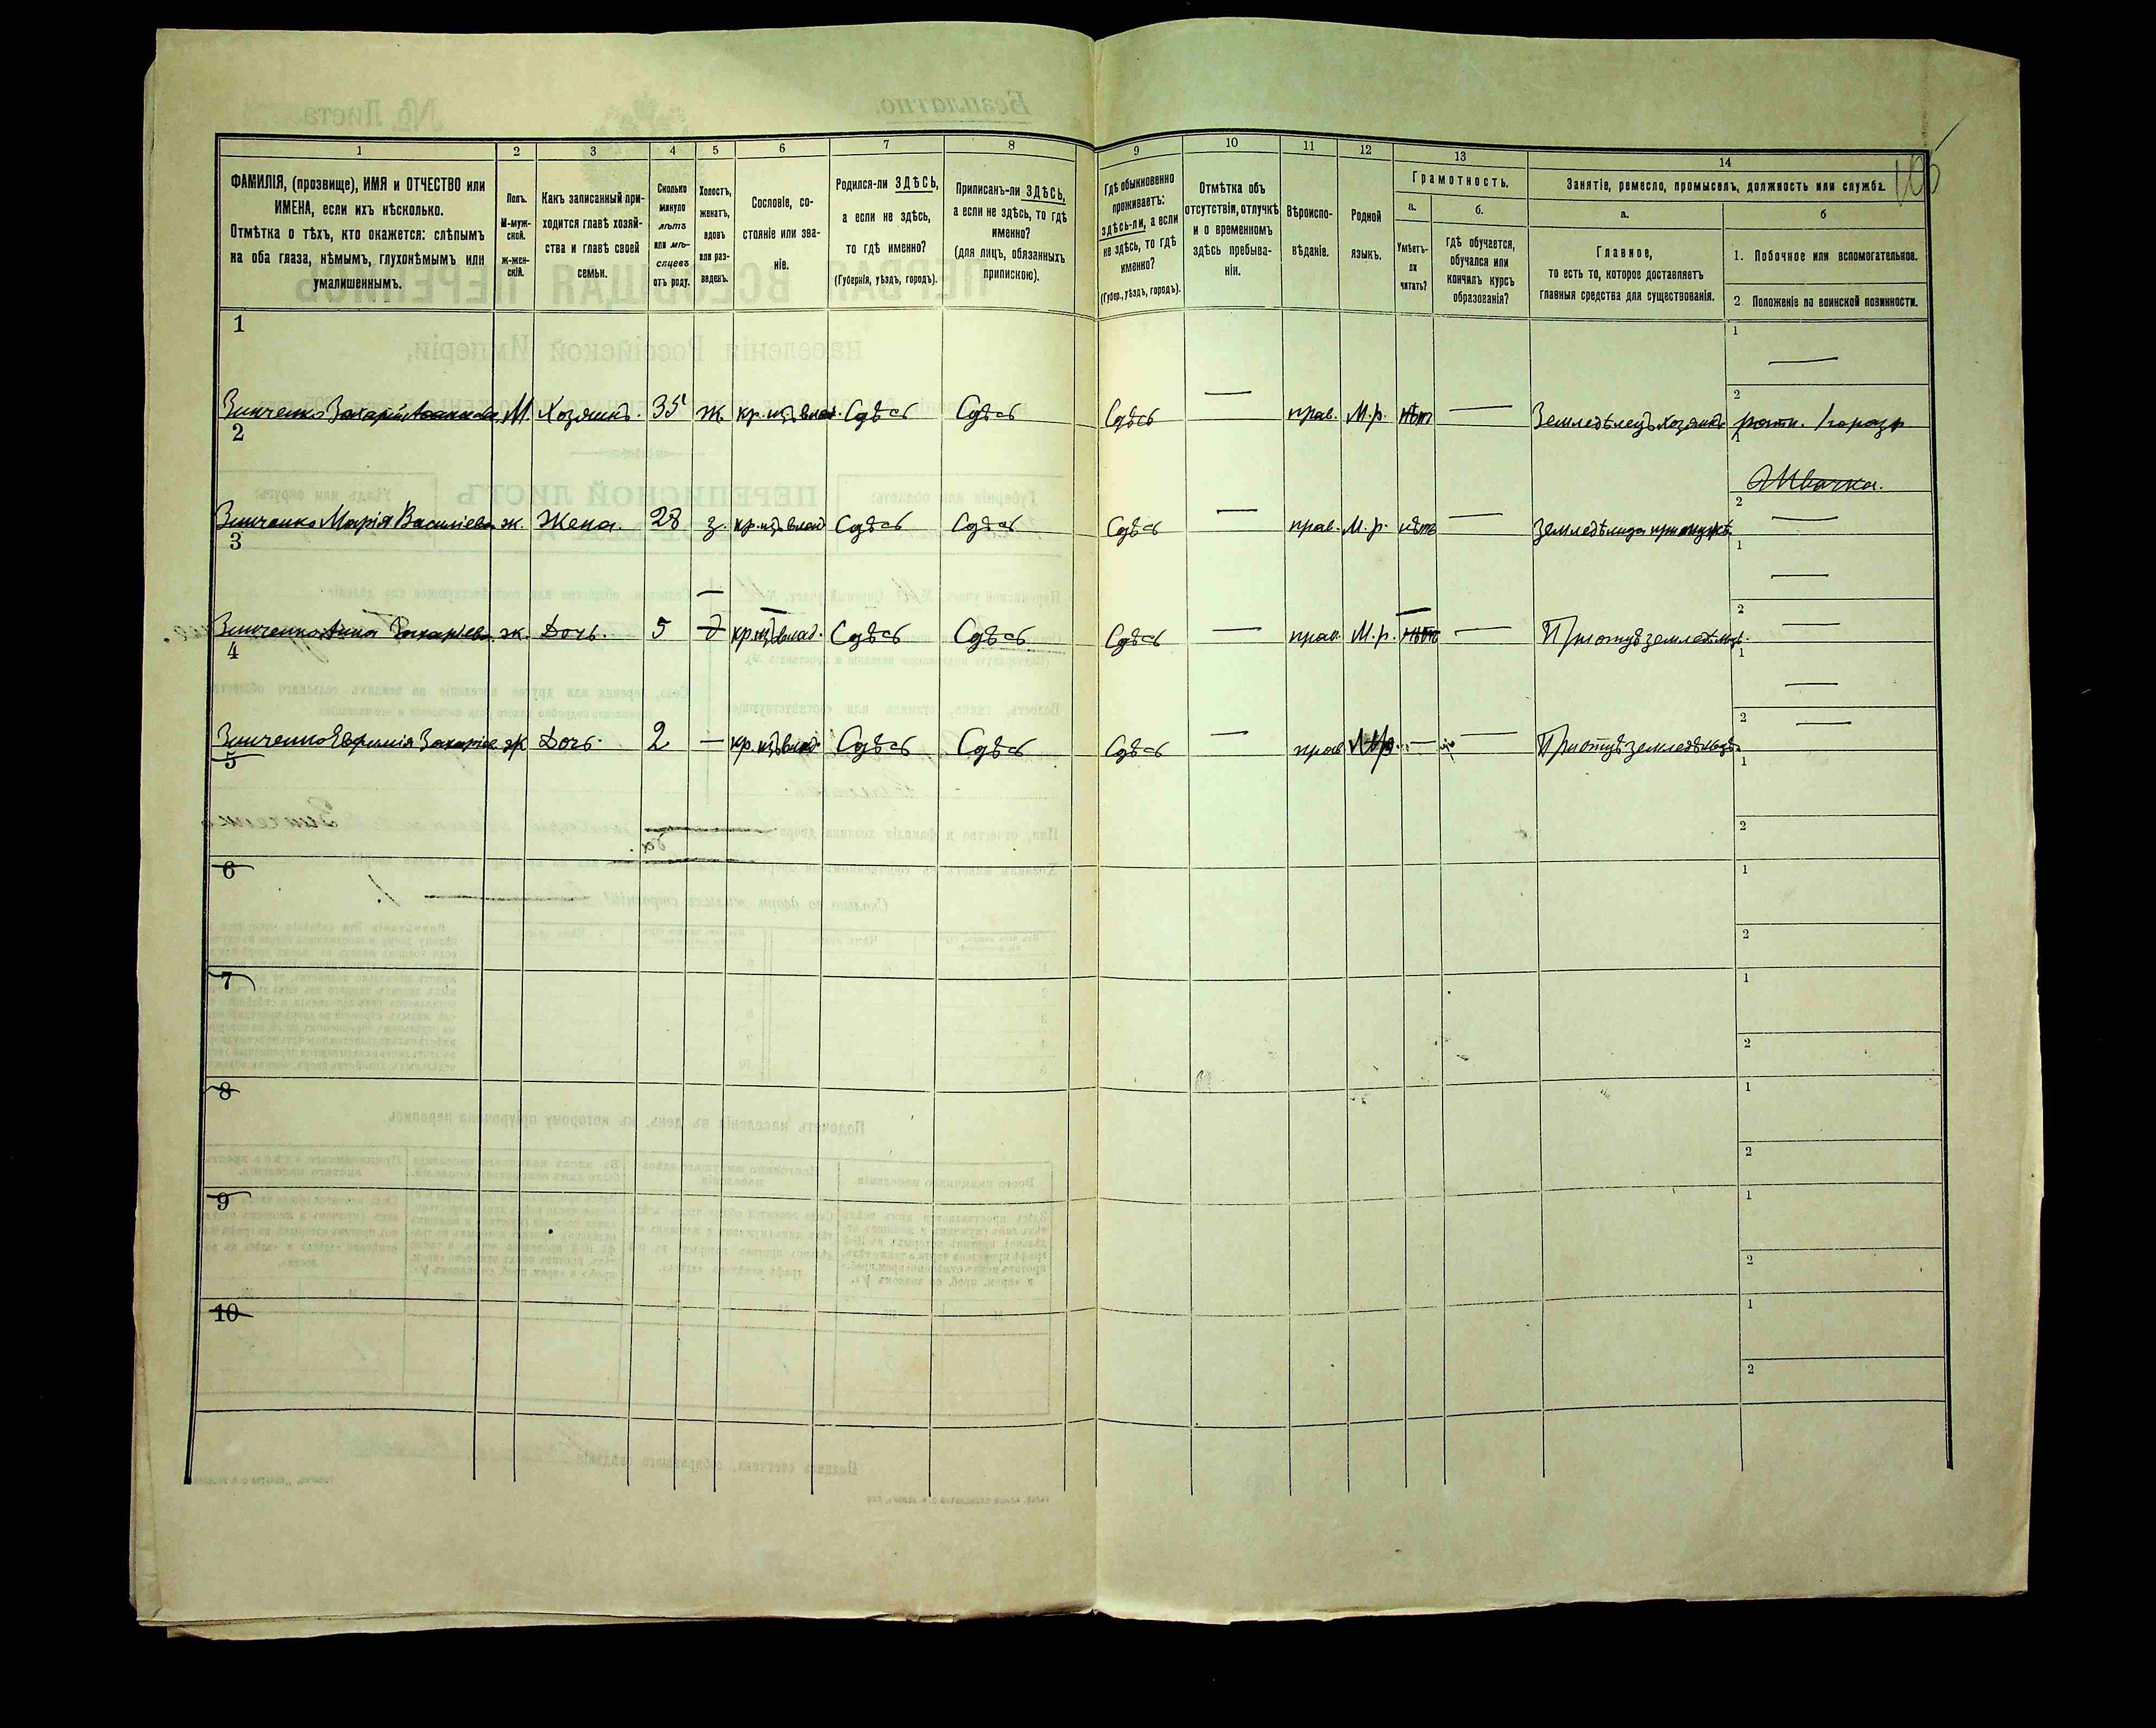 105
1 2 3 4 5 6 7 8 9 10 11 12 13 14
ФАМИЛІЯ, (прозвище), ИМЯ и ОТЧЕСТВО или
ИМЕНА, если ихъ нѣсколько.
Отмѣтка о тѣхъ, кто окажется: слѣпымъ
на оба глаза, нѣмымъ, глухонѣмымъ или
умалишеннымъ.
Полъ.
М-муж-
ской.
ж-жен-
скій.
Какъ записанный при-
ходится главѣ хозяй-
ства и главѣ своей
семьи.
Сколько
минуло
лѣтъ
или мѣ-
сяцевъ
отъ роду.
Холостъ,
женатъ,
вдовъ
или раз-
веденъ.
Сословіе, со-
стояніе или зва-
ніе.
Родился-ли ЗДѢСЬ,
а если не здѣсь,
то гдѣ именно?
(Губернія, уѣздъ, городъ).
Приписанъ-ли ЗДѢСЬ,
а если не здѣсь, то гдѣ
именно?
(для лицъ, обязанныхъ
припискою).
Гдѣ обыкновенно
проживаетъ:
здѣсь-ли, а если
не здѣсь, то гдѣ
именно?
(Губер., уѣздъ, городъ).
Отмѣтка объ
отсутствіи, отлучкѣ
и о временномъ
здѣсь пребыва-
ніи.
Вѣроиспо-
вѣданіе.
Родной
языкъ.
Грамотность.
а.
Умѣетъ-
ли
читать?
б.
гдѣ обучается,
обучался или
кончилъ курсъ
образованія?
Занятіе, ремесло, промыселъ, должность или служба.
а.
Главное,
то есть то, которое доставляетъ
главныя средства для существованія.
б
1. Побочное или вспомогательное.
2 Положеніе по воинской повинности.
1
1 —
2
Зинченко Захарій М. Хозяинъ. 35 ж. кр. изъ влад. Сдѣсь Сдѣсь Сдѣсь — прав. М.р. нѣтъ — Земледѣлецъ хозяинъ ратн. 1 разр
2
1 Швачка.
2
Зинченко Марія Васильева ж. Жена. 28 з. кр. изъ влад Сдѣсь Сдѣсь Сдѣсь — прав. М.р. нѣтъ — Земледѣлица при мужѣ —
3
1 —
2
Зинченко Анна Захаріева ж. Дочь. 5 д кр. изъ влад. Сдѣсь Сдѣсь Сдѣсь — прав. М.р. нѣтъ — При отцѣ земледѣльцѣ. —
4
1 —
2
Зинченко Евфимія Захаріев ж Дочь. 2 — кр. изъ влад. Сдѣсь Сдѣсь Сдѣсь — прав М.р. — — При отцѣ земледѣльцѣ —
5
1
2
6
1
2
7
1
2
8
1
2
9
1
2
10
1
2